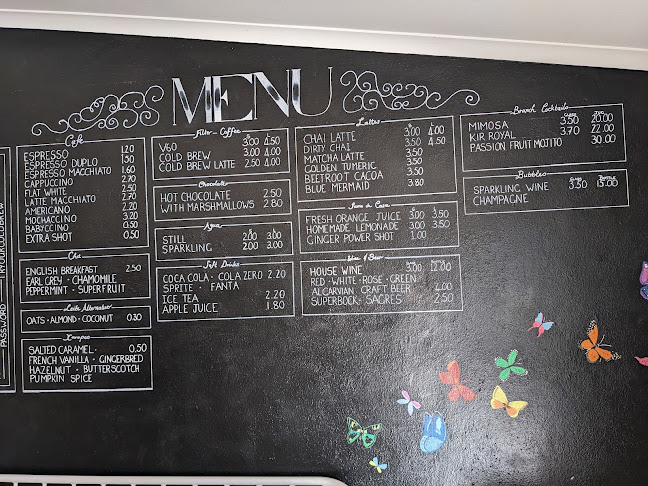 MENU
Café
ESPRESSO 1.20
ESPRESSO DUPLO 1.50
ESPRESSO MACCHIATO 1.60
CAPPUCCINO 2.70
FLAT WHITE 2.50
LATTE MACCHIATO 2.70
AMERICANO 2.20
MOCHACCINO 3.20
BABYCCINO 0.50
EXTRA SHOT 0.50
Chá
ENGLISH BREAKFAST 2.50
EARL GREY · CHAMOMILE
PEPPERMINT · SUPERFRUIT
Leite Alternativo
OATS · ALMOND · COCONUT 0.30
Xaropes
SALTED CARAMEL · 0.50
FRENCH VANILLA · GINGERBRED
HAZELNUT · BUTTERSCOTCH
PUMPKIN SPICE
Filter - Coffee
V60 3.00 4.50
COLD BREW 3.00 4.00
COLD BREW LATTE 2.50 4.00
Chocolate
HOT CHOCOLATE 2.50
WITH MARSHMALLOWS 2.80
Agua
STILL 2.00
SPARKLING 2.00 3.00
Soft Drinks
COCA COLA · COLA ZERO 2.20
SPRITE · FANTA
ICE TEA 2.20
APPLE JUICE 1.80
Lattes
CHAI LATTE 3.00 4.00
DIRTY CHAI 3.50 4.50
MATCHA LATTE
GOLDEN TUMERIC
BEETROOT CACOA
BLUE MERMAID 3.80
Sumo da Casa
FRESH ORANGE JUICE 3.00 3.50
HOMEMADE LEMONADE 3.00 3.50
GINGER POWER SHOT 1.00
Wine & Beer
HOUSE WINE 3.00 12.00
RED · WHITE · ROSE · GREEN
ALGARVIAN CRAFT BEER 4.00
SUPERBOCK · SAGRES 2.50
Brunch Cocktails
MIMOSA 3.50 20.00
KIR ROYAL 3.70 22.00
PASSION FRUIT MOJITO 30.00
Bubbles
SPARKLING WINE 3.50 15.00
CHAMPAGNE
PASSWORD